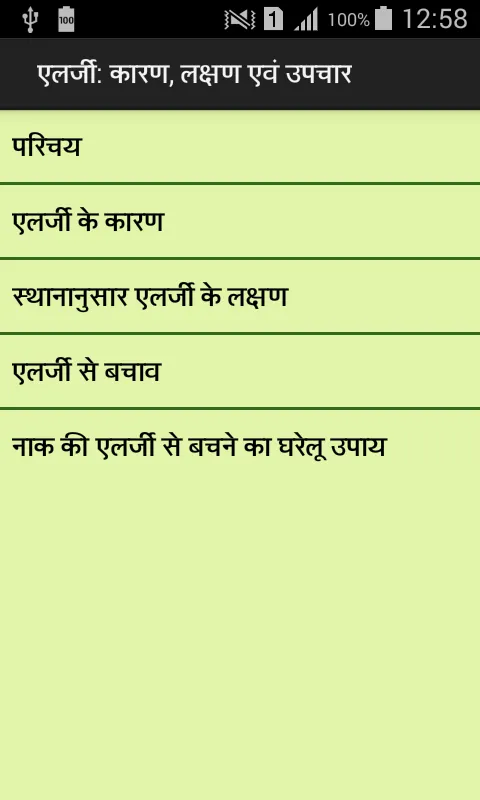 100 1 100% 12:58
एलर्जी: कारण, लक्षण एवं उपचार
परिचय
एलर्जी के कारण
स्थानानुसार एलर्जी के लक्षण
एलर्जी से बचाव
नाक की एलर्जी से बचने का घरेलू उपाय